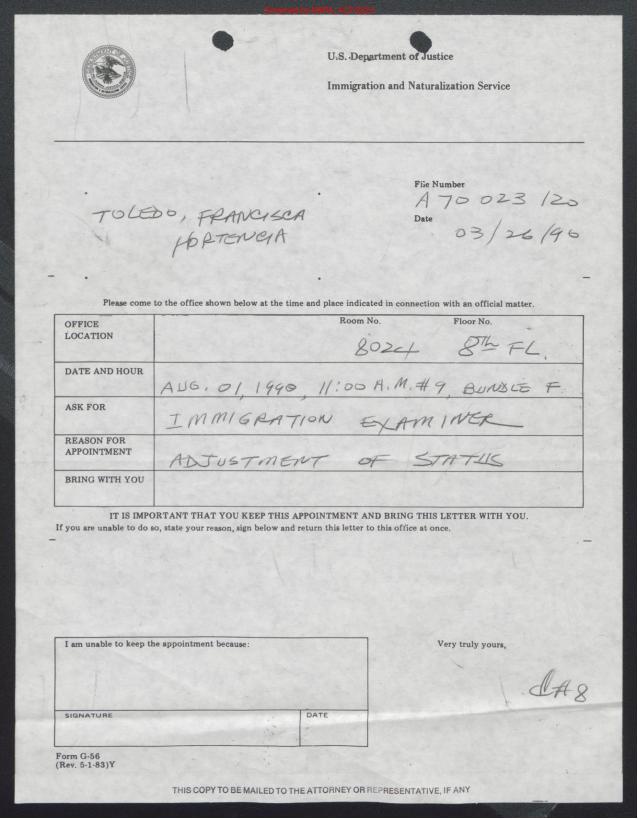 U.S. Department of Justice
Immigration and Naturalization Service
File Number
A 70 023 120
TOLEDO, FRANCISCA
HORTENCIA
Date
03/26/90
Please come to the office shown below at the time and place indicated in connection with an official matter.
OFFICE LOCATION
Room No. Floor No.
8024 8th FL.
DATE AND HOUR
AUG. 01, 1990, 11:00 A.M. #9, BUNDLE F
ASK FOR
IMMIGRATION EXAMINER
REASON FOR APPOINTMENT
ADJUSTMENT OF STATUS
BRING WITH YOU
IT IS IMPORTANT THAT YOU KEEP THIS APPOINTMENT AND BRING THIS LETTER WITH YOU.
If you are unable to do so, state your reason, sign below and return this letter to this office at once.
I am unable to keep the appointment because:
Very truly yours,
SIGNATURE
DATE
Form G-56
(Rev. 5-1-83)Y
THIS COPY TO BE MAILED TO THE ATTORNEY OR REPRESENTATIVE, IF ANY